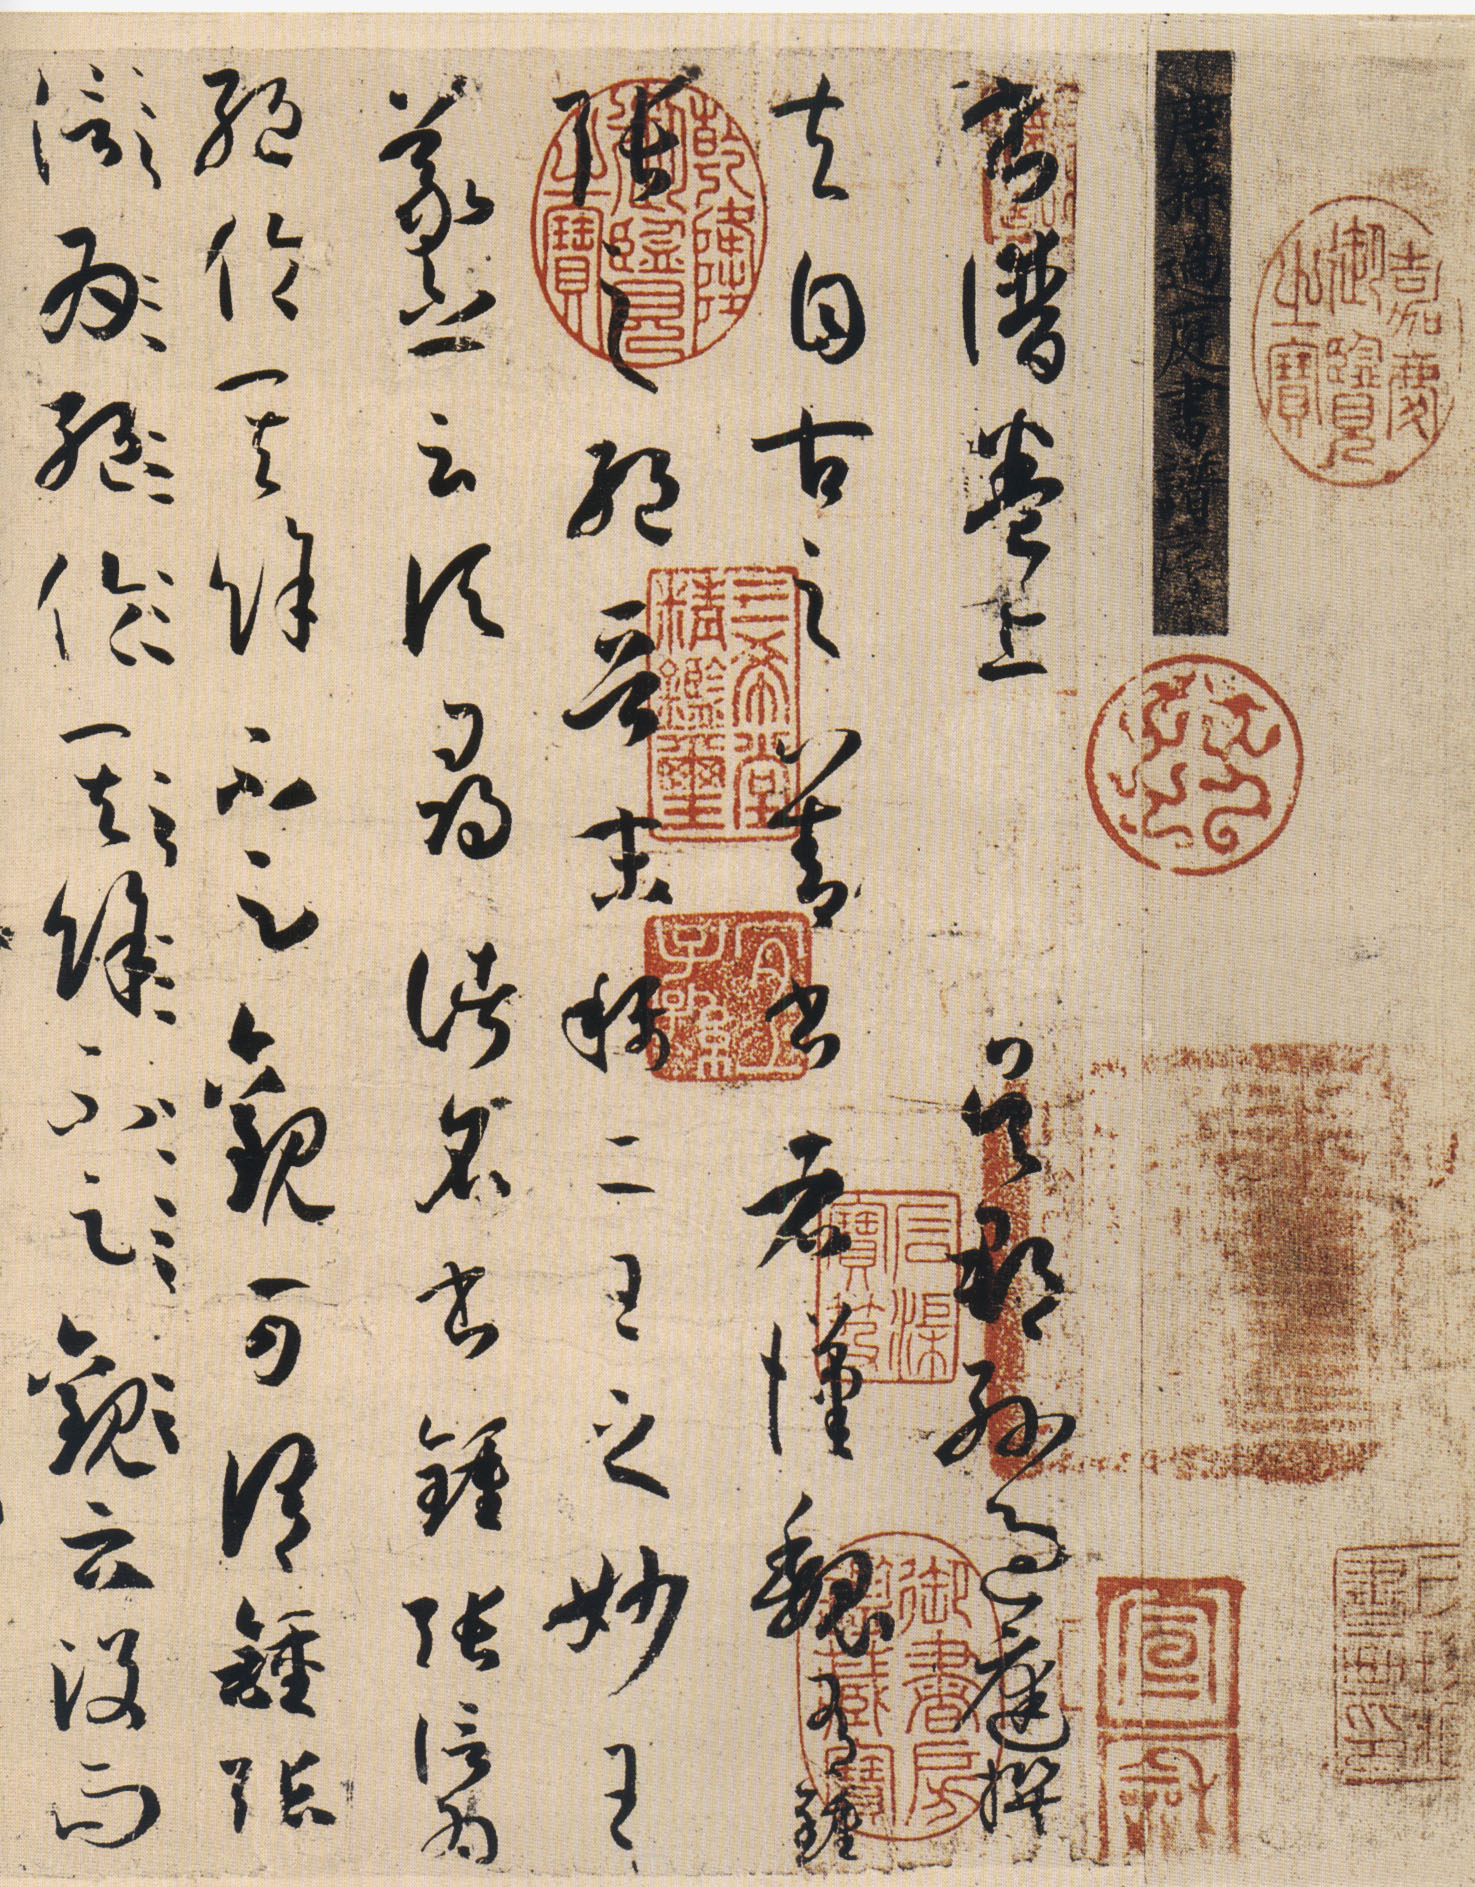 嘉慶御覽之寶
唐孫過庭書譜序
宣和
書譜卷上 吳郡孫過庭撰
夫自古之善書者漢魏有鍾
張之絕晉末稱二王之妙王
羲之云頃尋諸名書鍾張信為
絕倫其餘不足觀可謂鍾張
信為絕倫其餘不足觀云沒而
乾隆御覽之寶
三希堂精鑑璽
宜子孫
石渠寶笈
御書房鑑藏寶